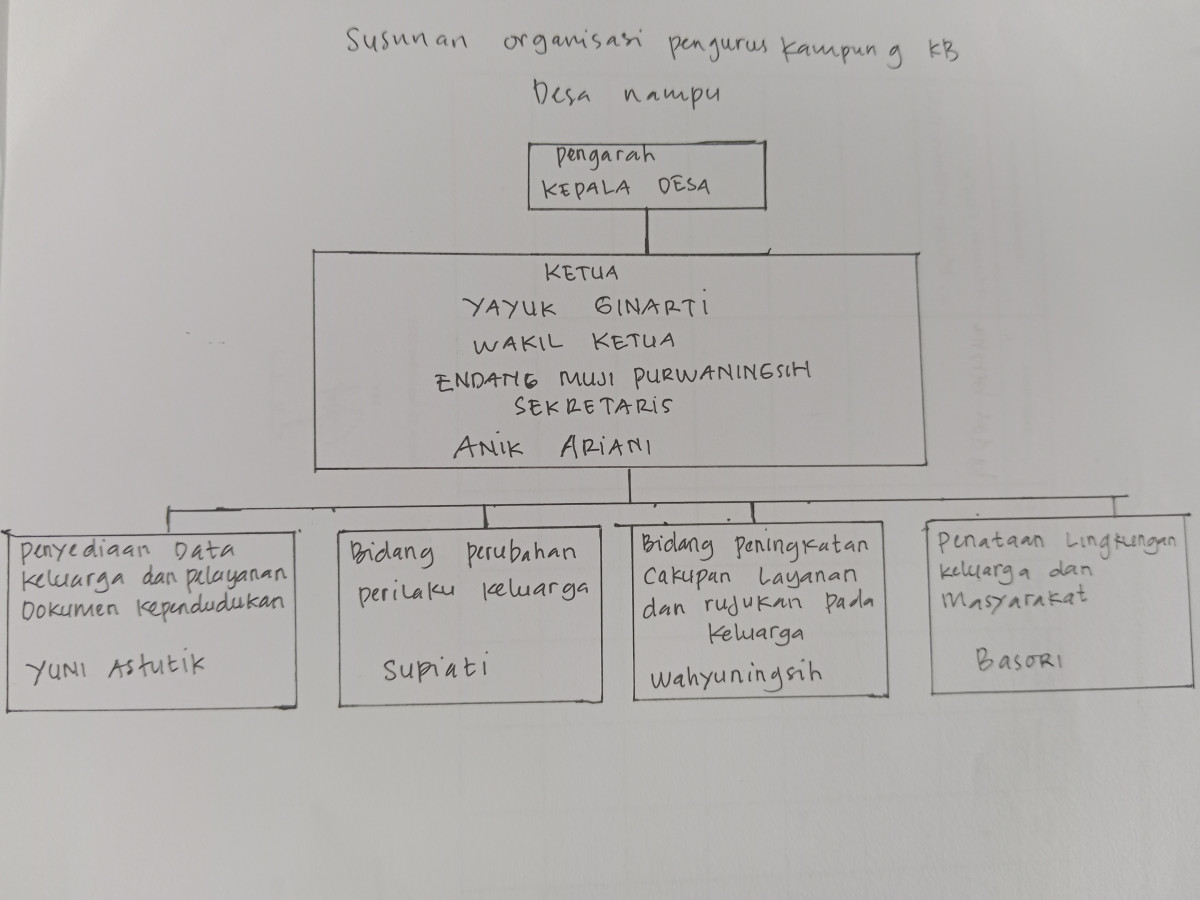 Susunan organisasi pengurus kampung KB
Desa nampu
Pengarah
KEPALA DESA
KETUA
YAYUK GINARTI
WAKIL KETUA
ENDANG MUJI PURWANINGSIH
SEKRETARIS
ANIK ARIANI
Penyediaan Data
keluarga dan pelayanan
Dokumen kependudukan
YUNI ASTUTIK
Bidang perubahan
perilaku keluarga
Supiati
Bidang Peningkatan
Cakupan Layanan
dan rujukan pada
keluarga
Wahyuningsih
Penataan Lingkungan
keluarga dan
Masyarakat
BASORI